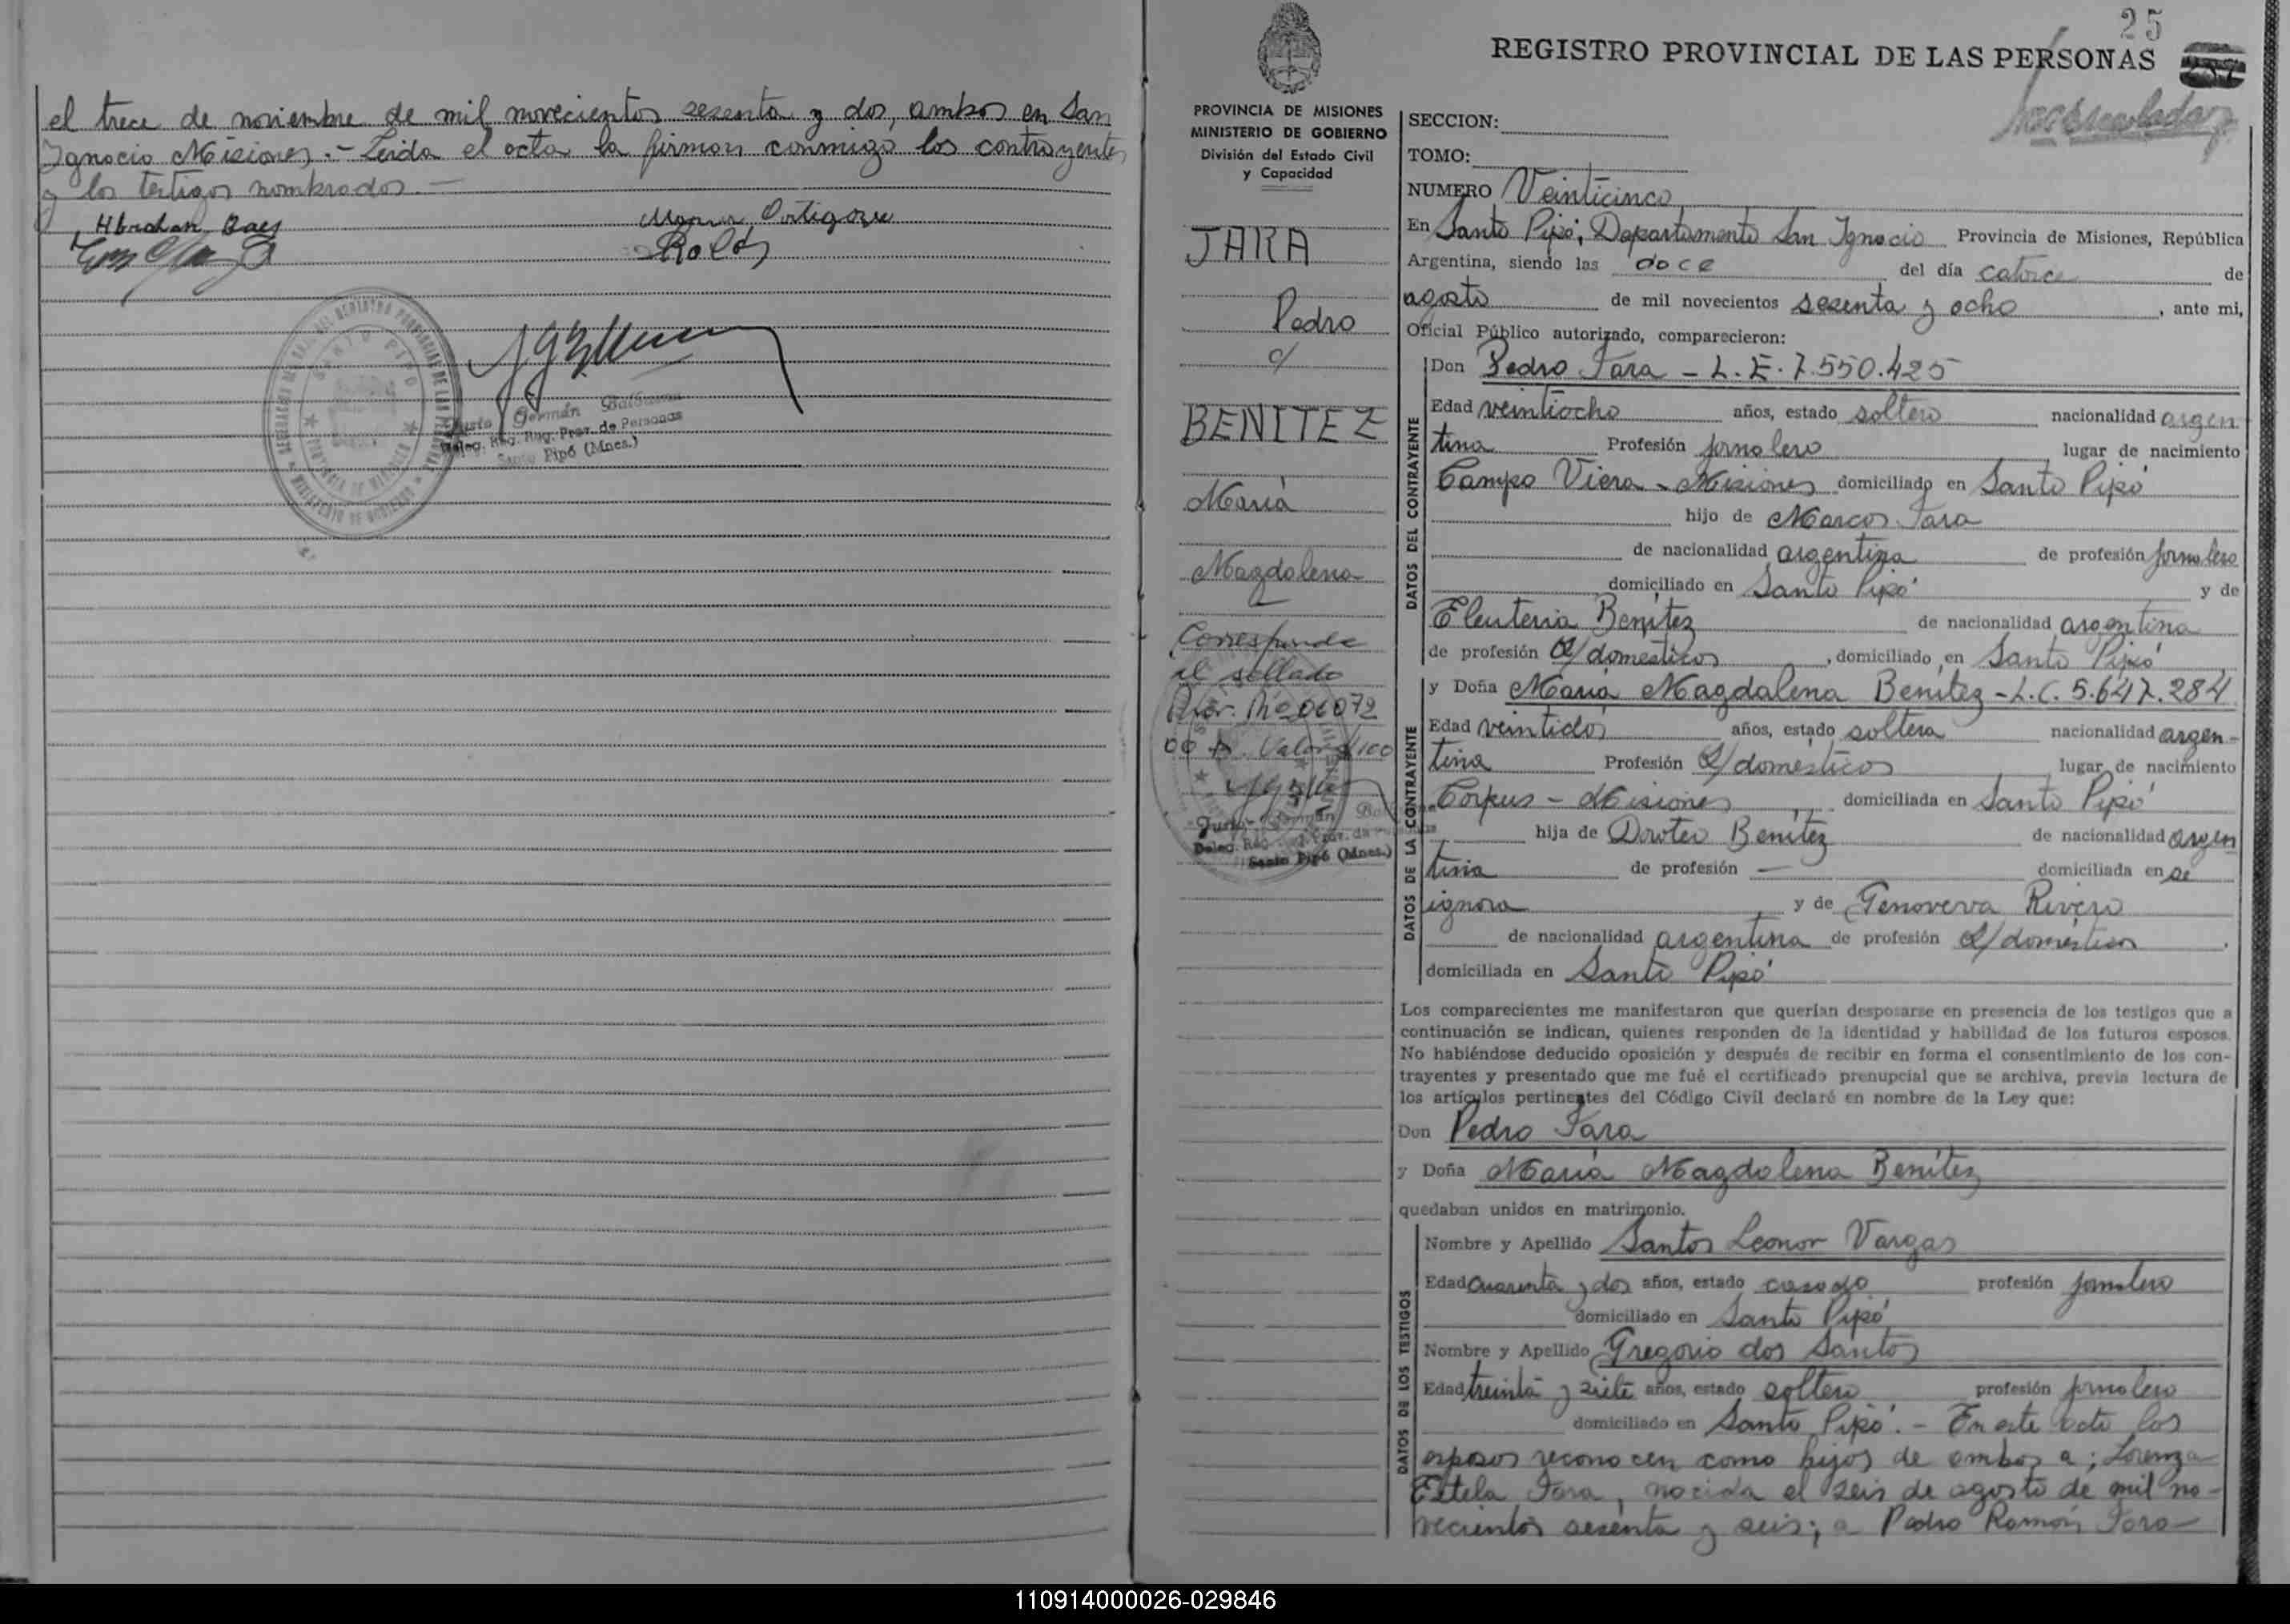 el trece de noviembre de mil novecientos sesenta y dos, ambos en San
Ignacio Misiones.- Leida el acta la firman conmigo los contrayentes
y los testigos nombrados.-
Abrahan Baes
DELEGACION
REGISTRO PROVINCIAL DE LAS PERSONAS
SANTO PIPO
PROVINCIA DE MISIONES
MINISTERIO DE GOBIERNO
Justo Germán
Deleg. Reg. Prov. de Personas
Santo Pipó (Mnes.)
25
REGISTRO PROVINCIAL DE LAS PERSONAS
PROVINCIA DE MISIONES
MINISTERIO DE GOBIERNO
División del Estado Civil
y Capacidad
JARA
Pedro
c/
BENITEZ
María
Magdalena
Corresponde
al sellado
Nº 06072
Valor $ 100
Justo Germán
Deleg. Reg.
Santo Pipó (Mnes.)
SECCION:
TOMO:
NUMERO Veinticinco
En Santo Pipó, Departamento San Ignacio Provincia de Misiones, República
Argentina, siendo las doce del día catorce de
agosto de mil novecientos sesenta y ocho, ante mi,
Oficial Público autorizado, comparecieron:
DATOS DEL CONTRAYENTE
Don Pedro Jara - L.E. 7.550.425
Edad veintiocho años, estado soltero nacionalidad argen
tina Profesión jornalero lugar de nacimiento
Campo Viera - Misiones domiciliado en Santo Pipó
hijo de Marcos Jara
de nacionalidad argentina de profesión jornalero
domiciliado en Santo Pipó y de
Eleuteria Benítez de nacionalidad argentina
de profesión Q/domesticos, domiciliado en Santo Pipó
DATOS DE LA CONTRAYENTE
y Doña María Magdalena Benítez - L.C. 5.647.284
Edad veintidos años, estado soltera nacionalidad argen-
tina Profesión Q/domesticos lugar de nacimiento
Corpus - Misiones, domiciliada en Santo Pipó
hija de Doroteo Benítez de nacionalidad argen
tina de profesión — domiciliada en se
ignora y de Genoveva Rivero
de nacionalidad argentina de profesión Q/domésticos
domiciliada en Santo Pipó
Los comparecientes me manifestaron que querían desposarse en presencia de los testigos que a
continuación se indican, quienes responden de la identidad y habilidad de los futuros esposos.
No habiéndose deducido oposición y después de recibir en forma el consentimiento de los con-
trayentes y presentado que me fué el certificado prenupcial que se archiva, previa lectura de
los artículos pertinentes del Código Civil declaré en nombre de la Ley que:
Don Pedro Jara
y Doña María Magdalena Benítez
quedaban unidos en matrimonio.
DATOS DE LOS TESTIGOS
Nombre y Apellido Santos Leonor Vargas
Edad cuarenta y dos años, estado casado profesión jornalero
domiciliado en Santo Pipó
Nombre y Apellido Gregorio dos Santos
Edad treinta y siete años, estado soltero profesión jornalero
domiciliado en Santo Pipó.- En este acto los
esposos reconocen como hijos de ambos a; Lorenza
Estela Jara, nacida el seis de agosto de mil no-
vecientos sesenta y seis; a Pedro Ramón Jara
110914000026-029846